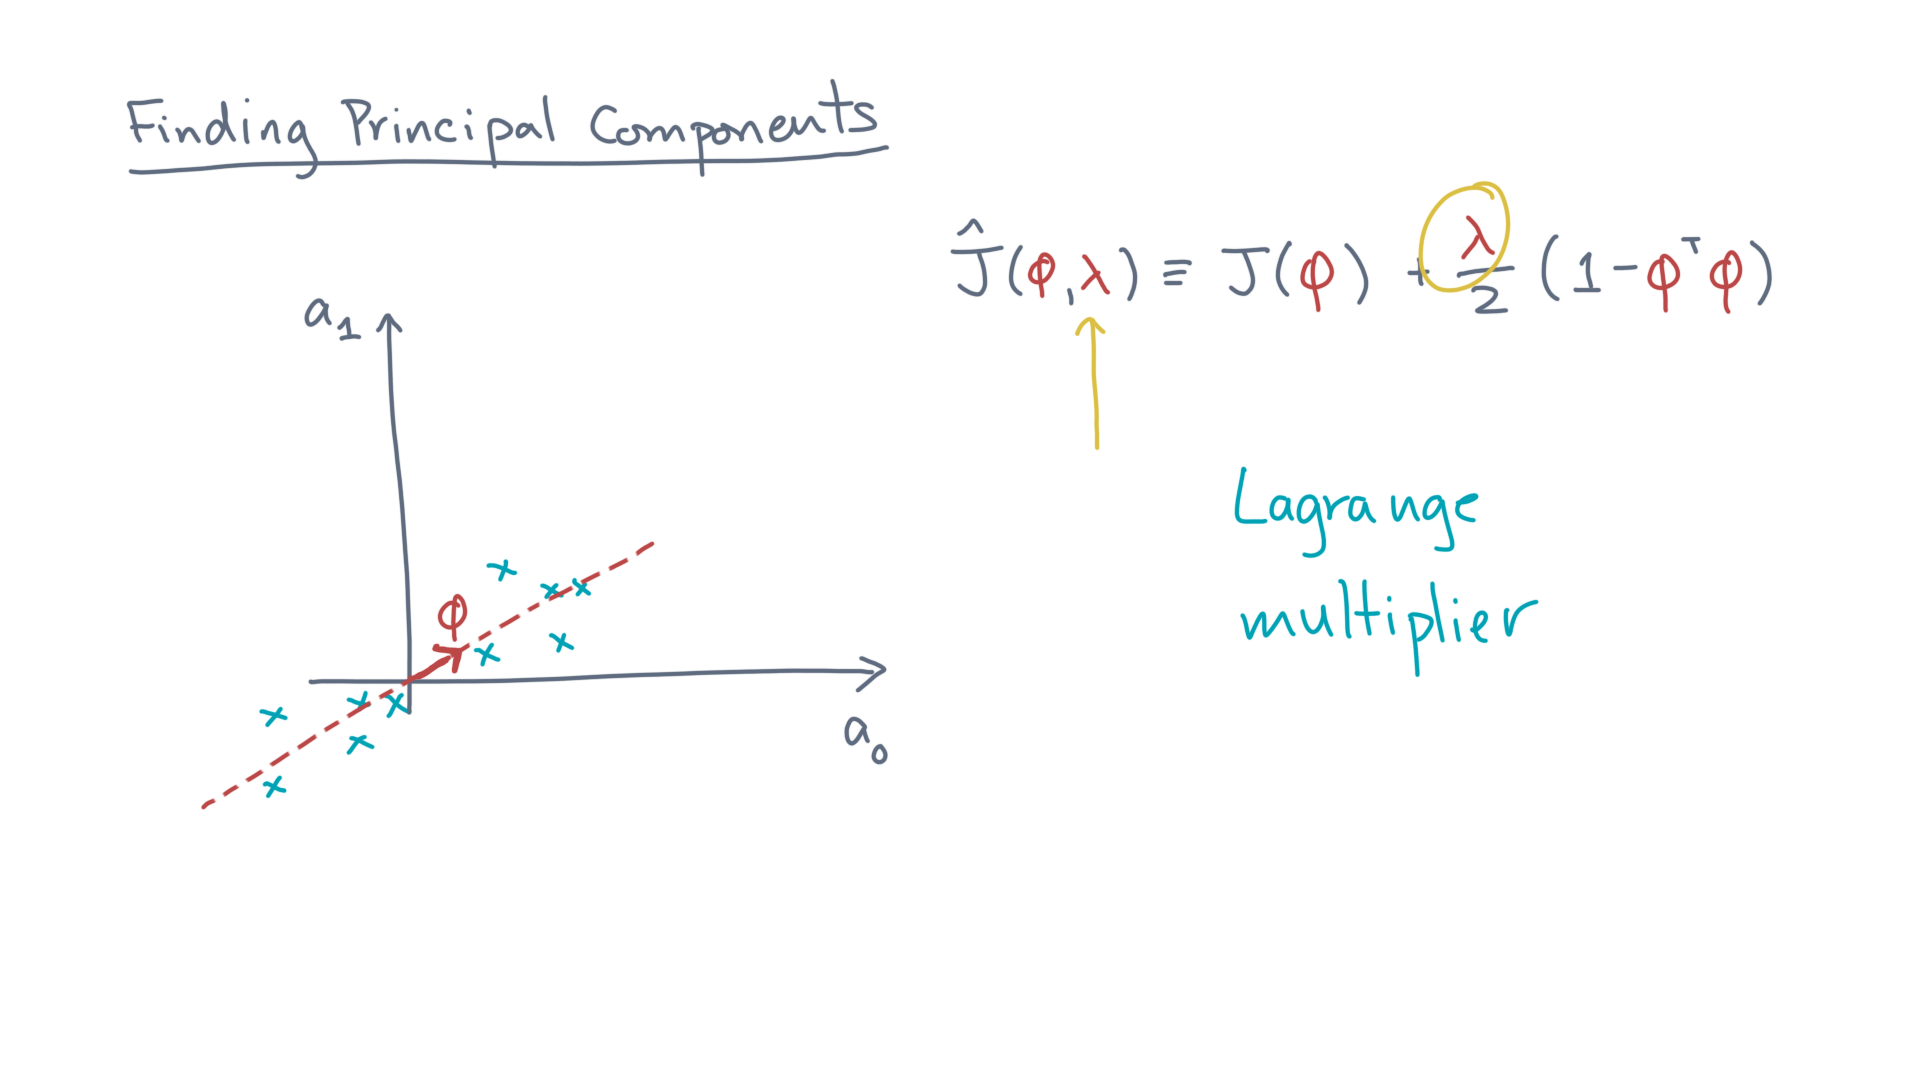 Finding Principal Components
Ĵ(φ,λ) ≡ J(φ) + λ/2 (1-φᵀφ)
a₁
Lagrange
multiplier
φ
a₀